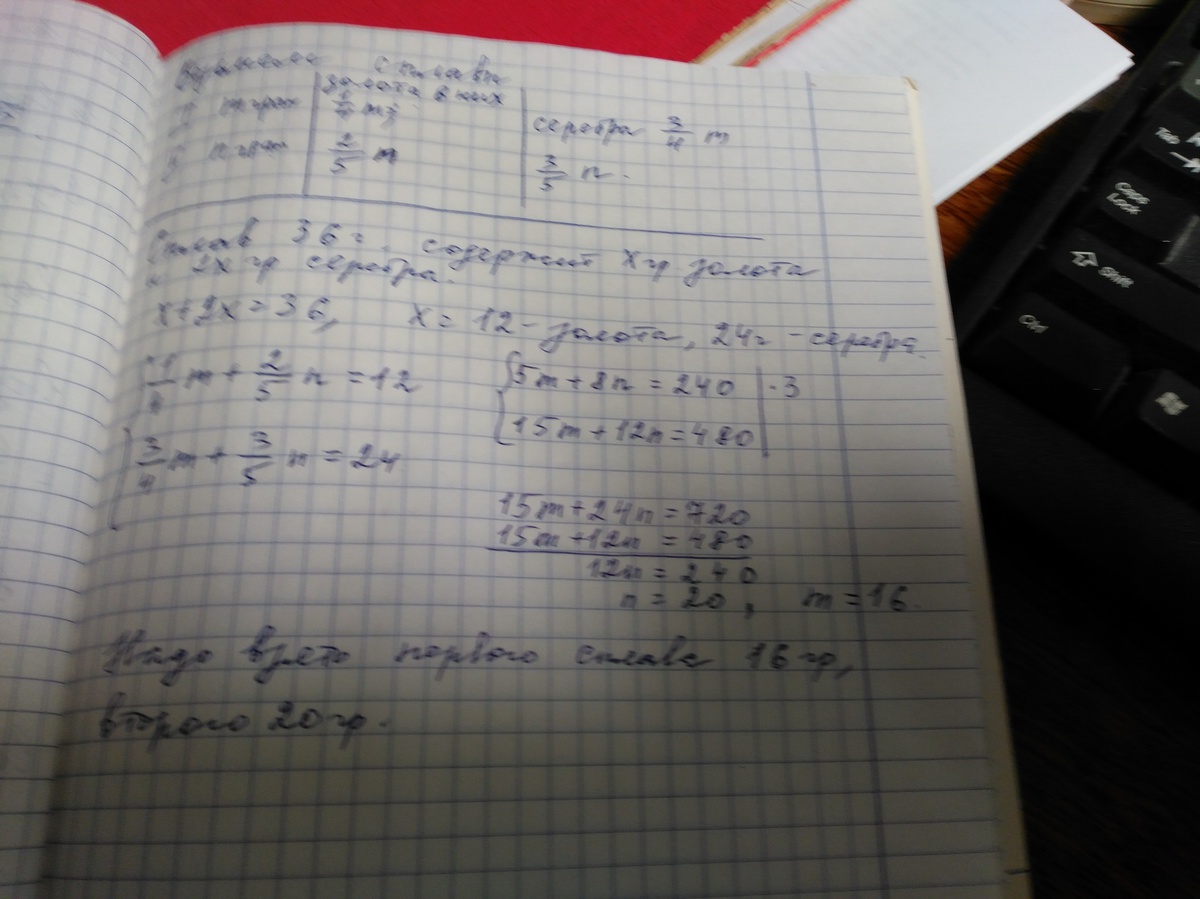 сплавы
золота в них
1/4 m;
серебра 3/4 m
2/5 n
3/5 n.
Сплав 36г. содержит x гр. золота
и 2x гр серебра.
x+2x=36, x=12 - золота, 24г - серебра.
1/4 m + 2/5 n = 12
3/4 m + 3/5 n = 24
5m+8n=240 | ·3
15m+12n=480
15m+24n=720
15m+12n=480
12n=240
n=20, m=16.
Надо взять первого сплава 16 гр,
второго 20 гр.
Tab
Caps Lock
Shift
Ctrl